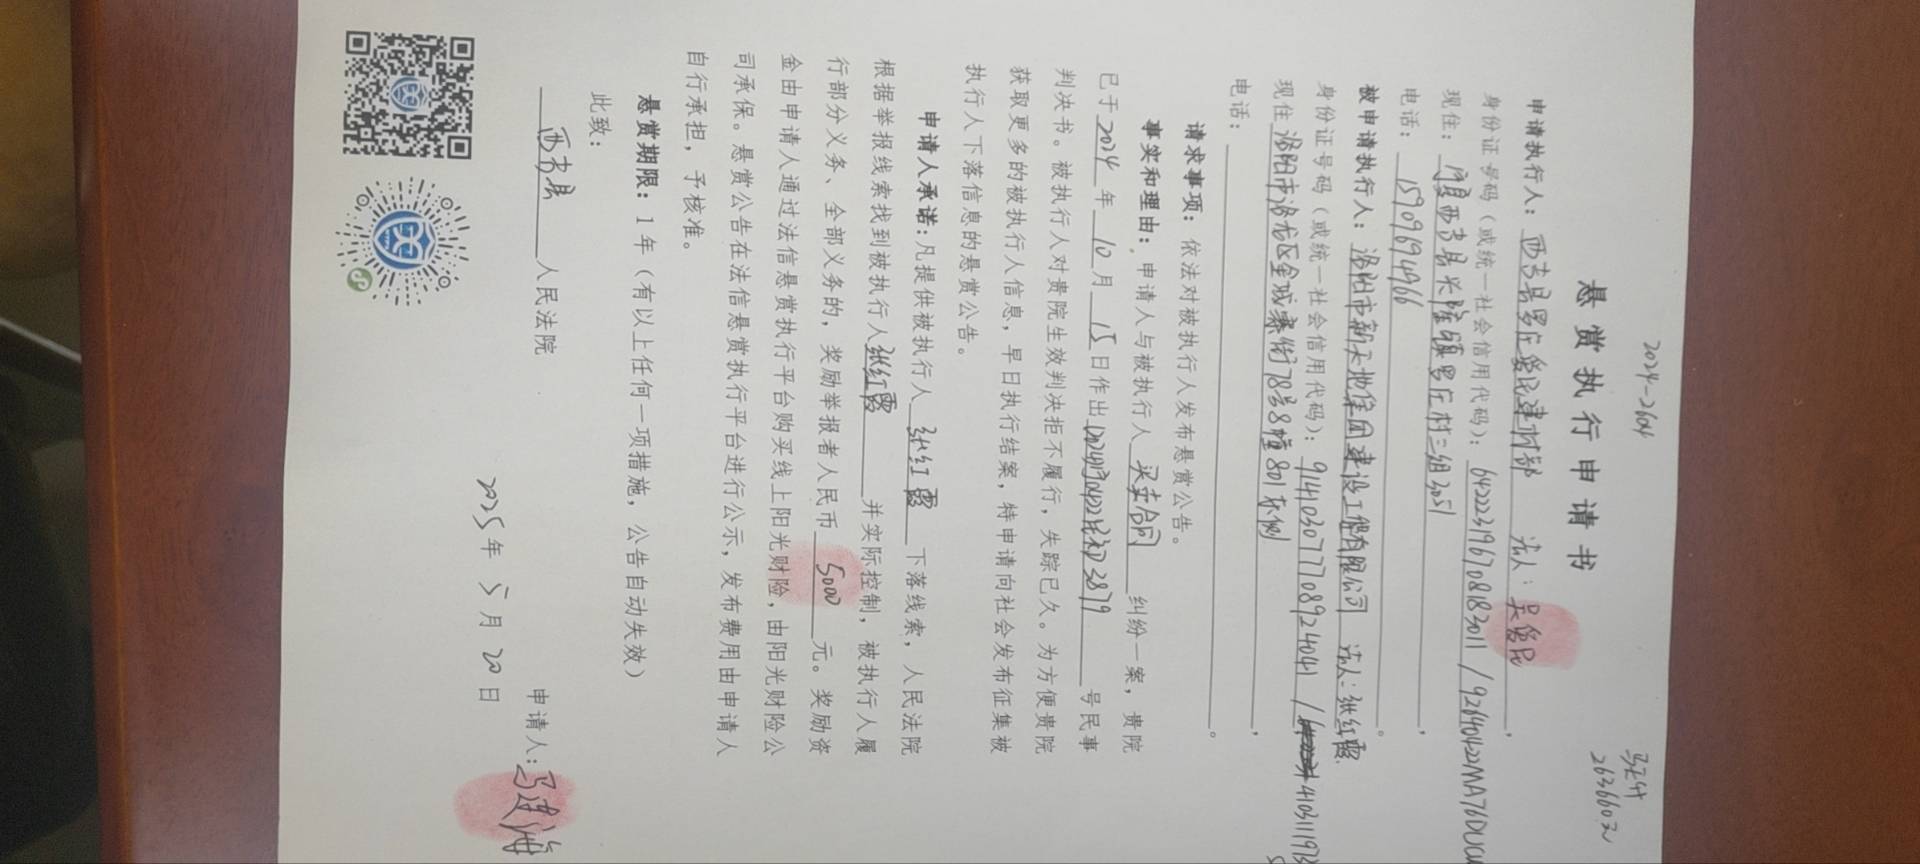 2024-2604
悬赏执行申请书
263660元
申请执行人：西吉县罗庄爱民建材部 法人：吴爱民
身份证号码（或统一社会信用代码）：642223196708183011 / 92640422MA76D
现住：宁夏西吉县兴隆镇罗庄村三组3051
电话：15909694966
被申请执行人：洛阳市新天地集团建设工程有限公司 法人：张红霞
身份证号码（或统一社会信用代码）：914103077708924041 / 410311197
现住洛阳市洛龙区金城寨街78号8幢801东侧
电话：
请求事项：依法对被执行人发布悬赏公告。
事实和理由：申请人与被执行人买卖合同纠纷一案，贵院
已于2024年10月15日作出(2024)宁0422民初3879号民事
判决书。被执行人对贵院生效判决拒不履行，失踪已久。为方便贵院
获取更多的被执行人信息，早日执行结案，特申请向社会发布征集被
执行人下落信息的悬赏公告。
申请人承诺：凡提供被执行人张红霞下落线索，人民法院
根据举报线索找到被执行人张红霞并实际控制，被执行人履
行部分义务、全部义务的，奖励举报者人民币5000元。奖励资
金由申请人通过法信悬赏执行平台购买线上阳光财险，由阳光财险公
司承保。悬赏公告在法信悬赏执行平台进行公示，发布费用由申请人
自行承担，予核准。
悬赏期限：1年（有以上任何一项措施，公告自动失效）
此致：
西吉县人民法院
申请人：马建海
2025年5月20日